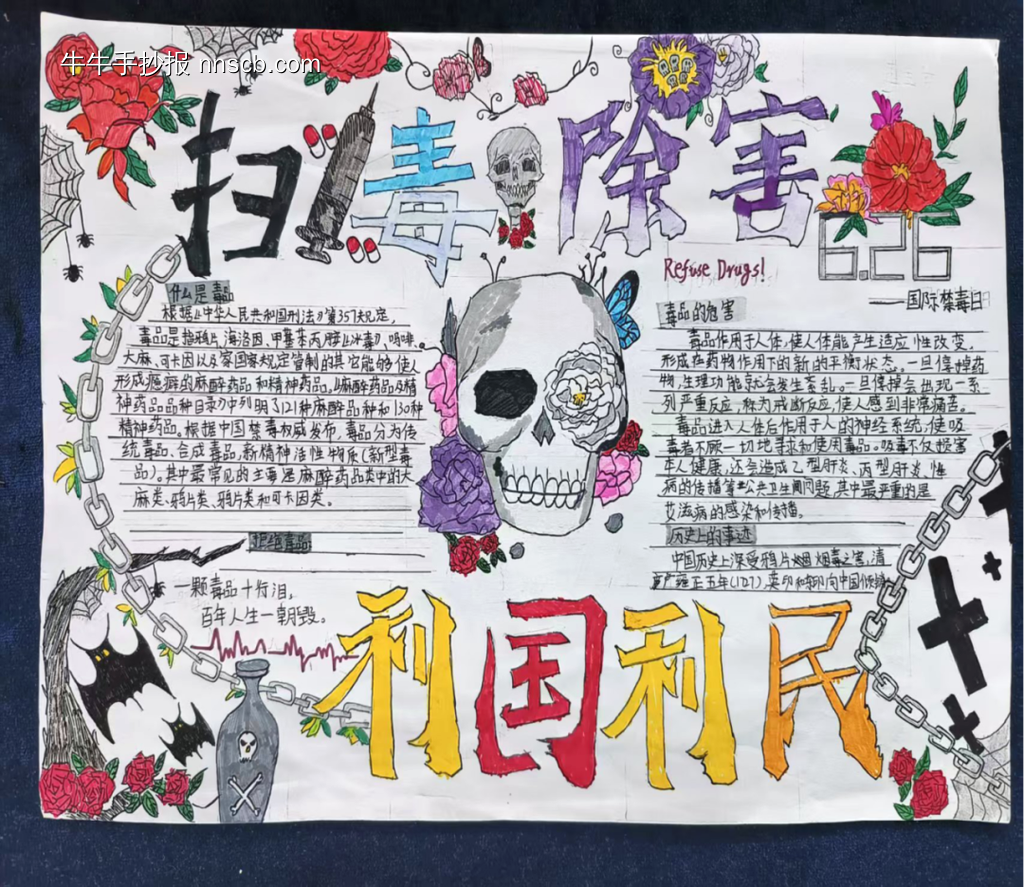 牛牛手抄报 nnscb.com
扫毒除害
6.26
Refuse Drugs!
——国际禁毒日
什么是毒品
根据《中华人民共和国刑法》第357规定,
毒品是指鸦片,海洛因,甲基苯丙胺(冰毒),吗啡,
大麻,可卡因以及家国家规定管制的其它能够使人
形成瘾癖的麻醉药品和精神药品。《麻醉药品及精
神药品品种目录》中列明了121种麻醉品种和130种
精神药品。根据中国禁毒权威发布,毒品分为传
统毒品、合成毒品,新精神活性物质(新型毒
品)。其中最常见的主要是麻醉药品类中的大
麻类。鸦片类、鸦片类和可卡因类。
拒绝毒品
一颗毒品十行泪,
百年人生一朝毁。
毒品的危害
毒品作用于人体,使人体能产生适应性改变,
形成在药物作用下的新的平衡状态。一旦停掉药
物,生理功能就会发生紊乱。一旦停掉会出现一系
列严重反应,称为戒断反应,使人感到非常痛苦。
毒品进入人体后作用于人的神经系统,使吸
毒者不顾一切地寻求和使用毒品。吸毒不仅损害
本人健康,还会造成乙型肝炎、丙型肝炎,性
病的传播等公共卫生间问题,其中最严重的是
艾滋病的感染和传播。
历史上的事迹
中国历史上深受鸦片烟烟毒之害,清
雍正五年(1727),英印和向中国倾
利国利民